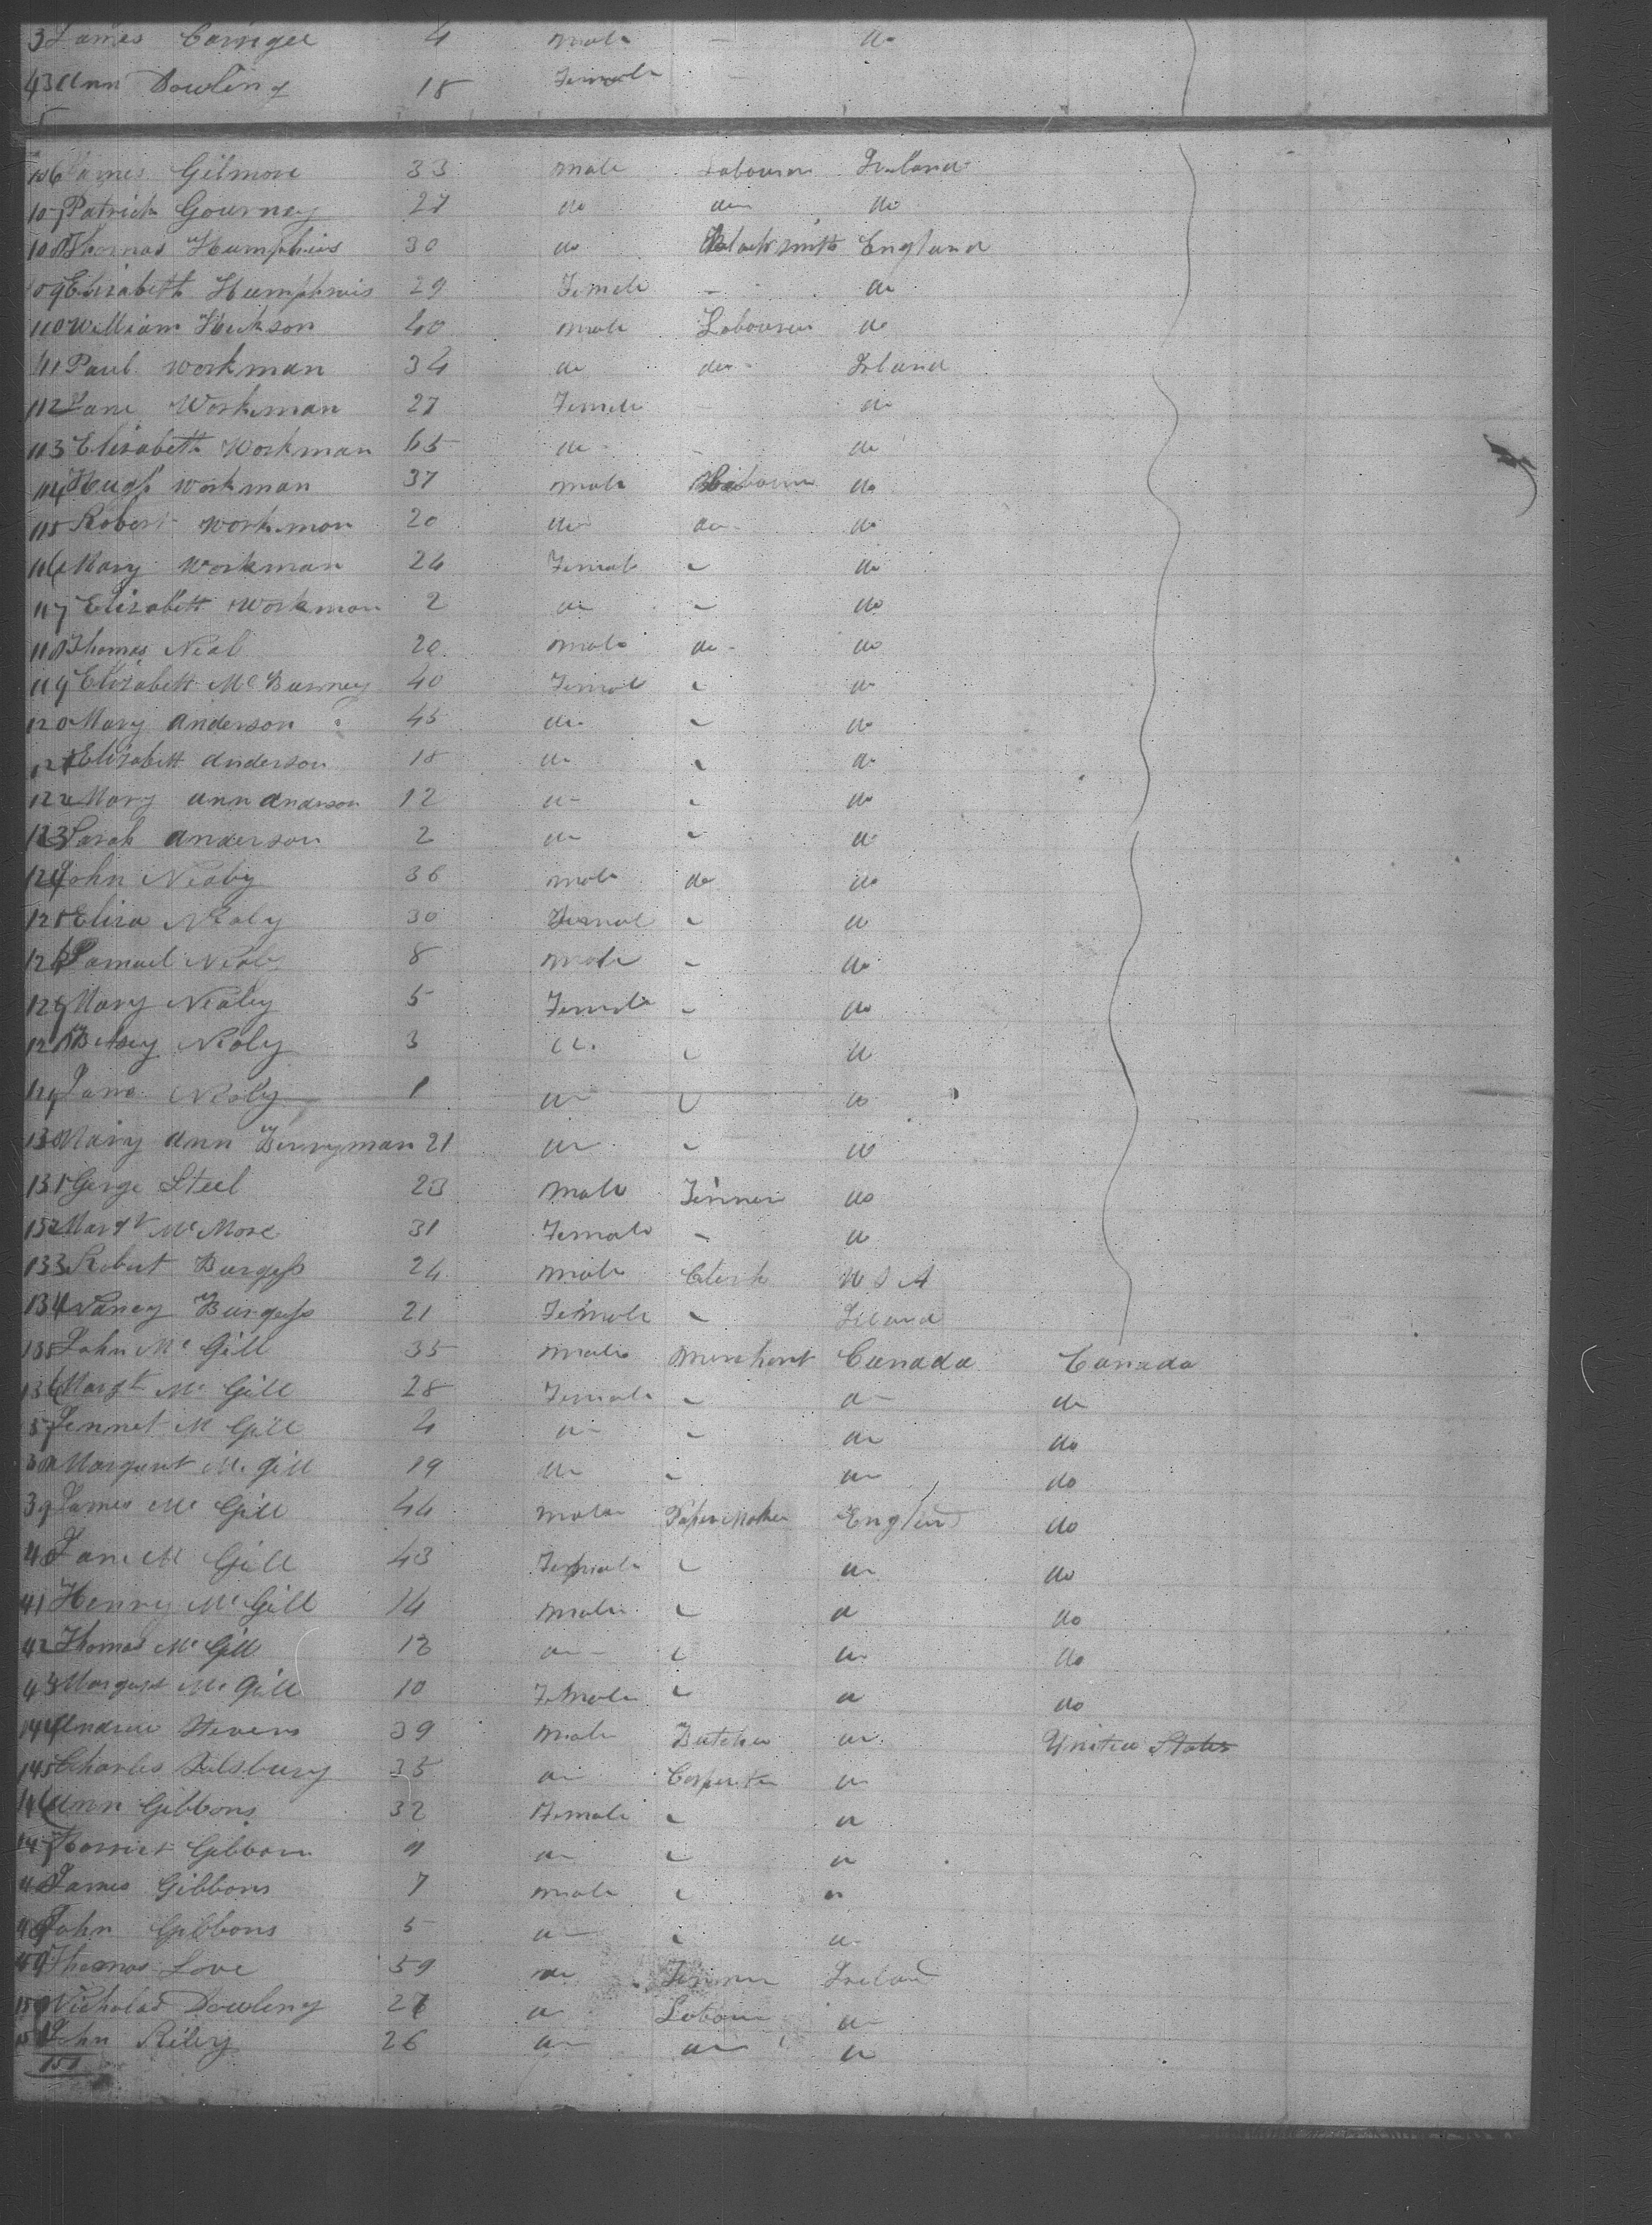 3 James Carrigee 4 male - do
43 Ann Dowling 18 Female -
106 James Gilmore 33 male Labourer Ireland
107 Patrick Gourney 27 do do do
108 Thomas Humphries 30 do Blacksmith England
109 Elizabeth Humphries 29 Female - do
110 William Hickson 40 male Labourer do
111 Paul Workman 34 do do Ireland
112 Jane Workman 27 Female - do
113 Elizabeth Workman 65 do - do
114 Hugh Workman 37 male Labourer do
115 Robert Workman 20 do do do
116 Mary Workman 24 Female " do
117 Elizabeth Workman 2 do " do
118 Thomas Neal 20 male do do
119 Elizabeth McBurney 40 Female " do
120 Mary Anderson 45 do " do
121 Elizabeth Anderson 18 do " do
122 Mary Ann Anderson 12 do " do
123 Sarah Anderson 2 do " do
124 John Nealy 36 male do do
125 Eliza Nealy 30 Female " do
126 Samuel Nealy 8 male " do
127 Mary Nealey 5 Female " do
128 Betsey Nealy 3 do " do
129 Jane Nealy 1 do " do
130 Mary Ann Berryman 21 do " do
131 Gerge Steel 23 male Farmer do
132 Margt McMore 31 Female " do
133 Robert Burgess 24 male Clerk U S A
134 Nancy Burgess 21 Female " Ireland
135 John McGill 35 male Merchant Canada Canada
136 Margt McGill 28 Female " do do
137 Jennet McGill 4 do " do do
38 Margaret McGill 19 do " do do
39 James McGill 44 male Paper Maker England do
40 Jane McGill 43 Female " do do
41 Henry McGill 14 male " do do
42 Thomas McGill 12 do " do do
43 Margaret McGill 10 Female " do do
144 Andrew Stevens 39 male Butcher do United States
145 Charles Salsbury 35 do Carpenter do
146 Ann Gibbons 32 Female " do
147 Harriet Gibbons 9 do " do
48 James Gibbons 7 male " do
49 John Gibbons 5 do " do
Thomas Love 59 do Farmer Ireland
Nicholas Dowling 27 do Labour do
John Riley 26 do do do
151